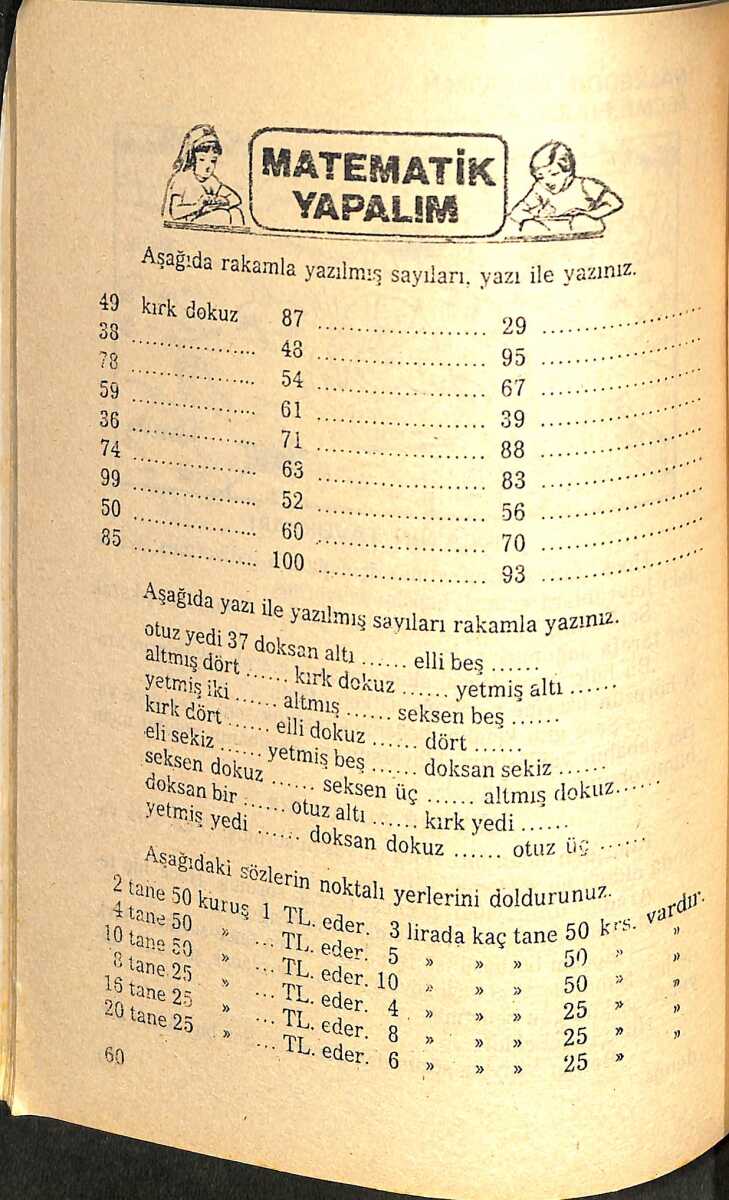 MATEMATİK
YAPALIM
Aşağıda rakamla yazılmış sayıları, yazı ile yazınız.
49 kırk dokuz 87 .................... 29 ....................
38 ................ 43 .................... 95 ....................
78 ................ 54 .................... 67 ....................
59 ................ 61 .................... 39 ....................
36 ................ 71 .................... 88 ....................
74 ................ 63 .................... 83 ....................
99 ................ 52 .................... 56 ....................
50 ................ 60 .................... 70 ....................
85 ................ 100 .................... 93 ....................
Aşağıda yazı ile yazılmış sayıları rakamla yazınız.
otuz yedi 37 doksan altı ...... elli beş ......
altmış dört ...... kırk dokuz ...... yetmiş altı ......
yetmiş iki ...... altmış ...... seksen beş ......
kırk dört ...... elli dokuz ...... dört ......
eli sekiz ...... yetmiş beş ...... doksan sekiz ......
seksen dokuz ...... seksen üç ...... altmış dokuz......
doksan bir ...... otuz altı ...... kırk yedi ......
yetmiş yedi ...... doksan dokuz ...... otuz üç ......
Aşağıdaki sözlerin noktalı yerlerini doldurunuz.
2 tane 50 kuruş 1 TL. eder. 3 lirada kaç tane 50 krs. vardır.
4 tane 50 » ... TL. eder. 5 » » » 50 » »
10 tane 50 » ... TL. eder. 10 » » » 50 » »
8 tane 25 » ... TL. eder. 4 » » » 25 » »
16 tane 25 » ... TL. eder. 8 » » » 25 » »
20 tane 25 » ... TL. eder. 6 » » » 25 » »
60